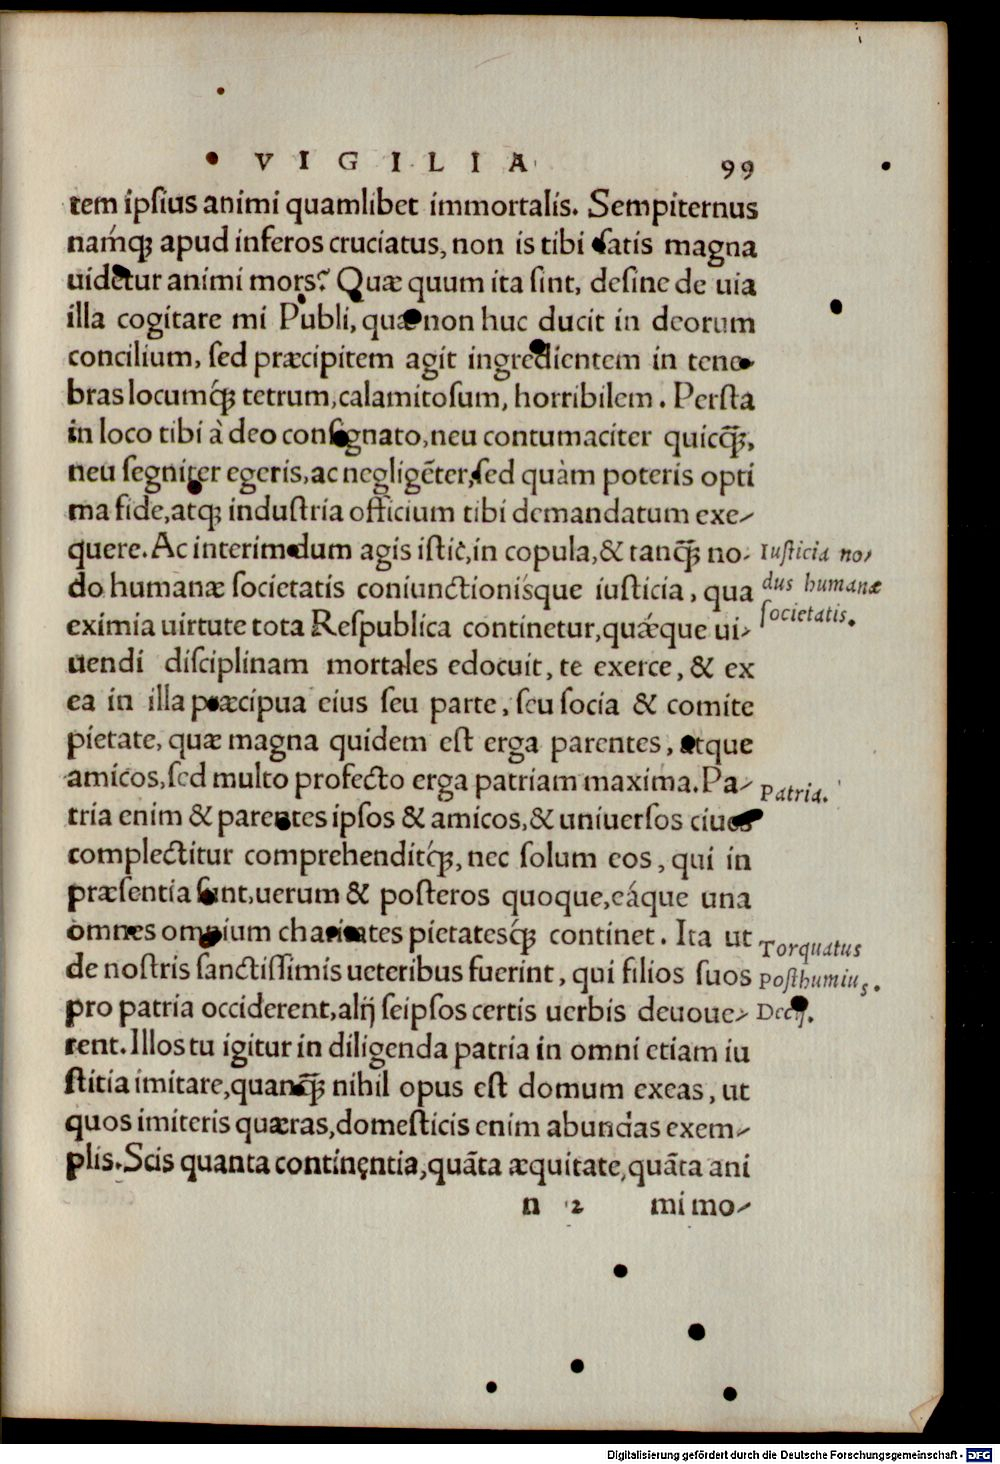 VIGILIA 99
tem ipsius animi quamlibet immortalis. Sempiternus
namq́ꝫ apud inferos cruciatus, non is tibi satis magna
uidetur animi mors? Quæ quum ita sint, desine de uia
illa cogitare mi Publi, quæ non huc ducit in deorum
concilium, sed præcipitem agit ingredientem in tene-
bras locumq́ꝫ tetrum, calamitosum, horribilem. Persta
in loco tibi à deo consignato, neu contumaciter quicq̃ꝫ,
neu segniter egeris, ac negligẽter, sed quàm poteris opti
ma fide, atqꝫ industria officium tibi demandatum exe-
quere. Ac interim dum agis istîc, in copula, & tanq̃ꝫ no-
do humanæ societatis coniunctionísque iusticia, qua
eximia uirtute tota Respublica continetur, quǽque ui-
uendi disciplinam mortales edocuit, te exerce, & ex
ea in illa præcipua eius seu parte, seu socia & comite
pietate, quæ magna quidem est erga parentes, atque
amicos, sed multo profecto erga patriam maxima. Pa-
tria enim & parentes ipsos & amicos, & uniuersos ciues
complectitur comprehenditq́ꝫ, nec solum eos, qui in
præsentia sunt, uerum & posteros quoque, eáque una
omnes omnium charitates pietatesq́ꝫ continet. Ita ut
de nostris sanctissimis ueteribus fuerint, qui filios suos
pro patria occiderent, alij seipsos certis uerbis deuoue-
rent. Illos tu igitur in diligenda patria in omni etiam iu
stitia imitare, quanq̃ꝫ nihil opus est domum exeas, ut
quos imiteris quæras, domesticis enim abundas exem-
plis. Scis quanta continentia, quãta æquitate, quãta ani
n 2 mi mo-
Iusticia no-
dus humanæ
societatis.
Patria.
Torquatus
Posthumius.
Decij.
Digitalisierung gefördert durch die Deutsche Forschungsgemeinschaft - DFG